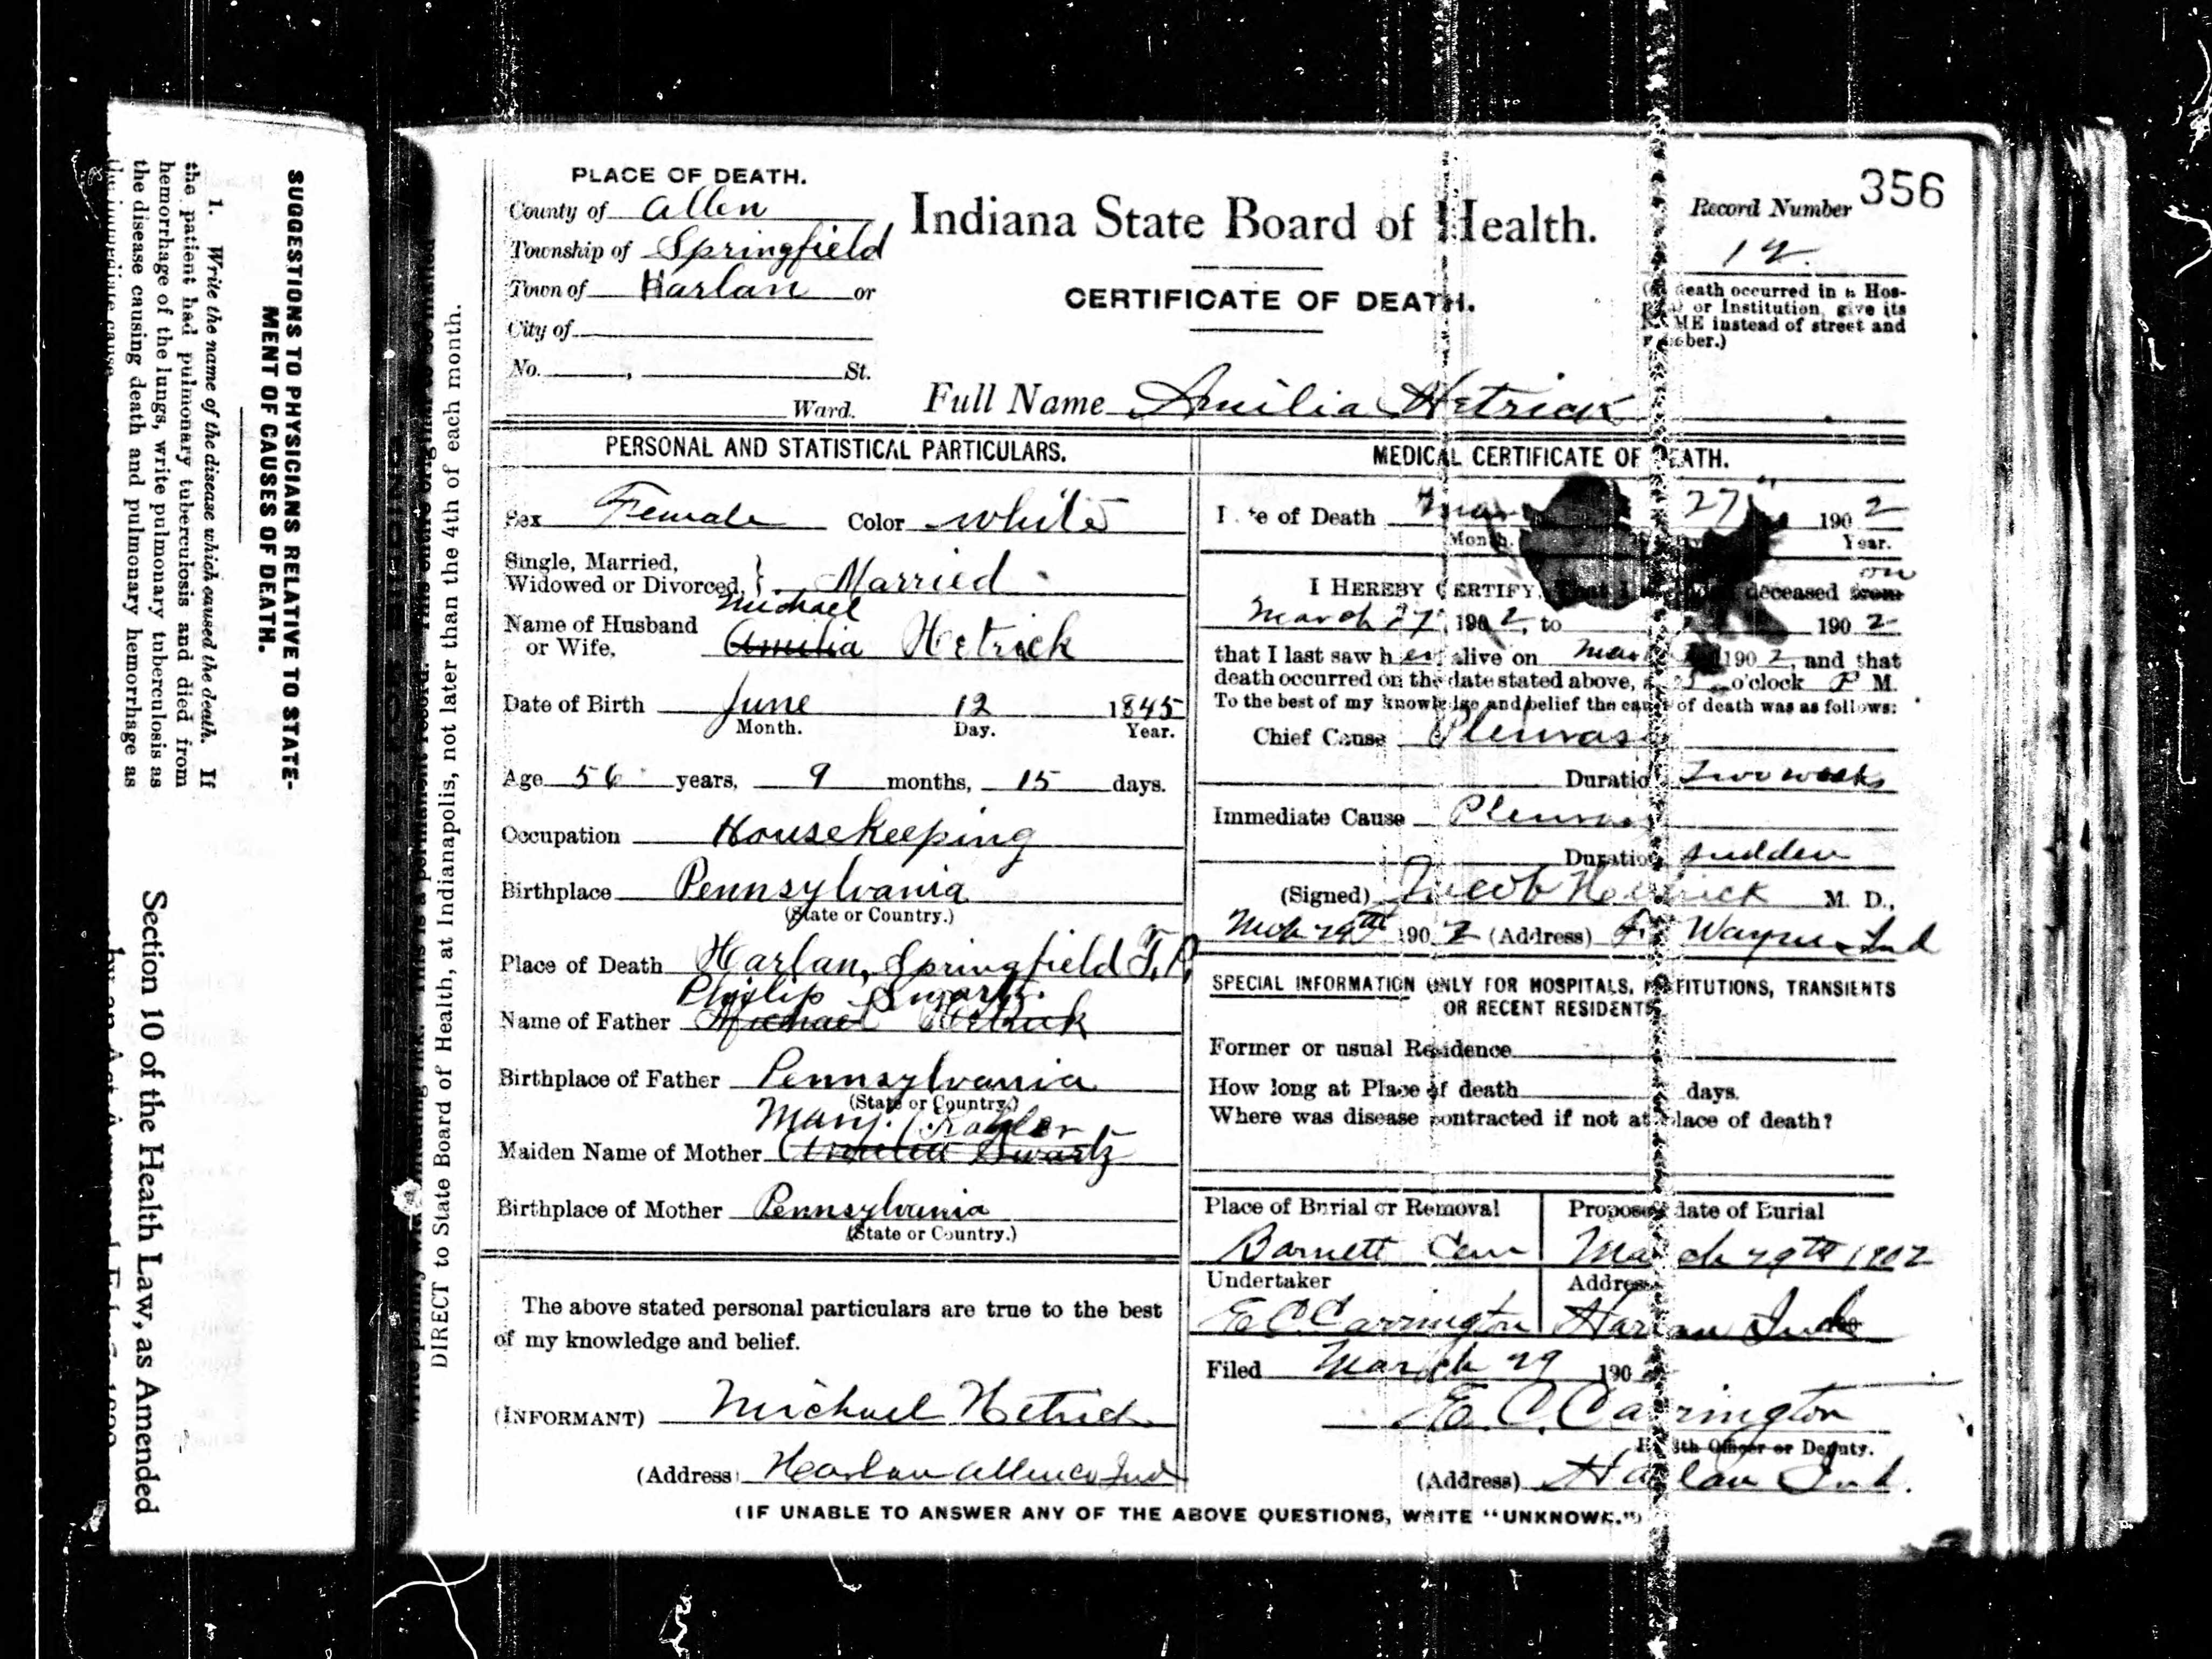 SUGGESTIONS TO PHYSICIANS RELATIVE TO STATE-
MENT OF CAUSES OF DEATH.
1. Write the name of the disease which caused the death. If
the patient had pulmonary tuberculosis and died from
hemorrhage of the lungs, write pulmonary tuberculosis as
the disease causing death and pulmonary hemorrhage as
Section 10 of the Health Law, as Amended
DIRECT to State Board of Health, at Indianapolis, not later than the 4th of each month.
PLACE OF DEATH.
County of Allen
Township of Springfield
Town of Harlan or
City of
No. , St.
Ward.
Indiana State Board of Health.
CERTIFICATE OF DEATH.
356
Record Number
12
death occurred in a Hos-
or Institution, give its
instead of street and
Full Name Amilia Hetrick
PERSONAL AND STATISTICAL PARTICULARS.
Sex Female Color White
Single, Married,
Widowed or Divorced, } Married
Michael
Name of Husband
or Wife, Amilia Hetrick
Date of Birth June 12 1845
Month. Day. Year.
Age 56 years, 9 months, 15 days.
Occupation Housekeeping
Birthplace Pennsylvania
(State or Country.)
Place of Death Harlan, Springfield T.P.
Philip Swartz.
Name of Father Michael Hetrick
Birthplace of Father Pennsylvania
(State or Country.)
Mary.
Maiden Name of Mother Swartz
Birthplace of Mother Pennsylvania
(State or Country.)
The above stated personal particulars are true to the best
of my knowledge and belief.
(INFORMANT) Michael Hetrick
(Address) Harlan Allen Co Ind
MEDICAL CERTIFICATE OF DEATH.
Date of Death Mar 27 1902
Month. Year.
on
I HEREBY CERTIFY, that I deceased from
March 27, 1902, to 1902
that I last saw her alive on Mar 1902, and that
death occurred on the date stated above, o'clock P M.
To the best of my knowledge and belief the cause of death was as follows:
Chief Cause
Duration Two weeks
Immediate Cause
Duration sudden
(Signed) Jacob Hetrick M. D.,
1902 (Address) Ft Wayne Ind
SPECIAL INFORMATION ONLY FOR HOSPITALS, INSTITUTIONS, TRANSIENTS
OR RECENT RESIDENTS
Former or usual Residence
How long at Place of death days.
Where was disease contracted if not at place of death?
Place of Burial or Removal
Barnett Cem
Proposed date of Burial
March 29th 1902
Undertaker
E C Carrington
Address
Harlan Ind
Filed March 29 190
E. C. Carrington
Health Officer or Deputy.
(Address) Harlan Ind.
(IF UNABLE TO ANSWER ANY OF THE ABOVE QUESTIONS, WRITE "UNKNOWN.")